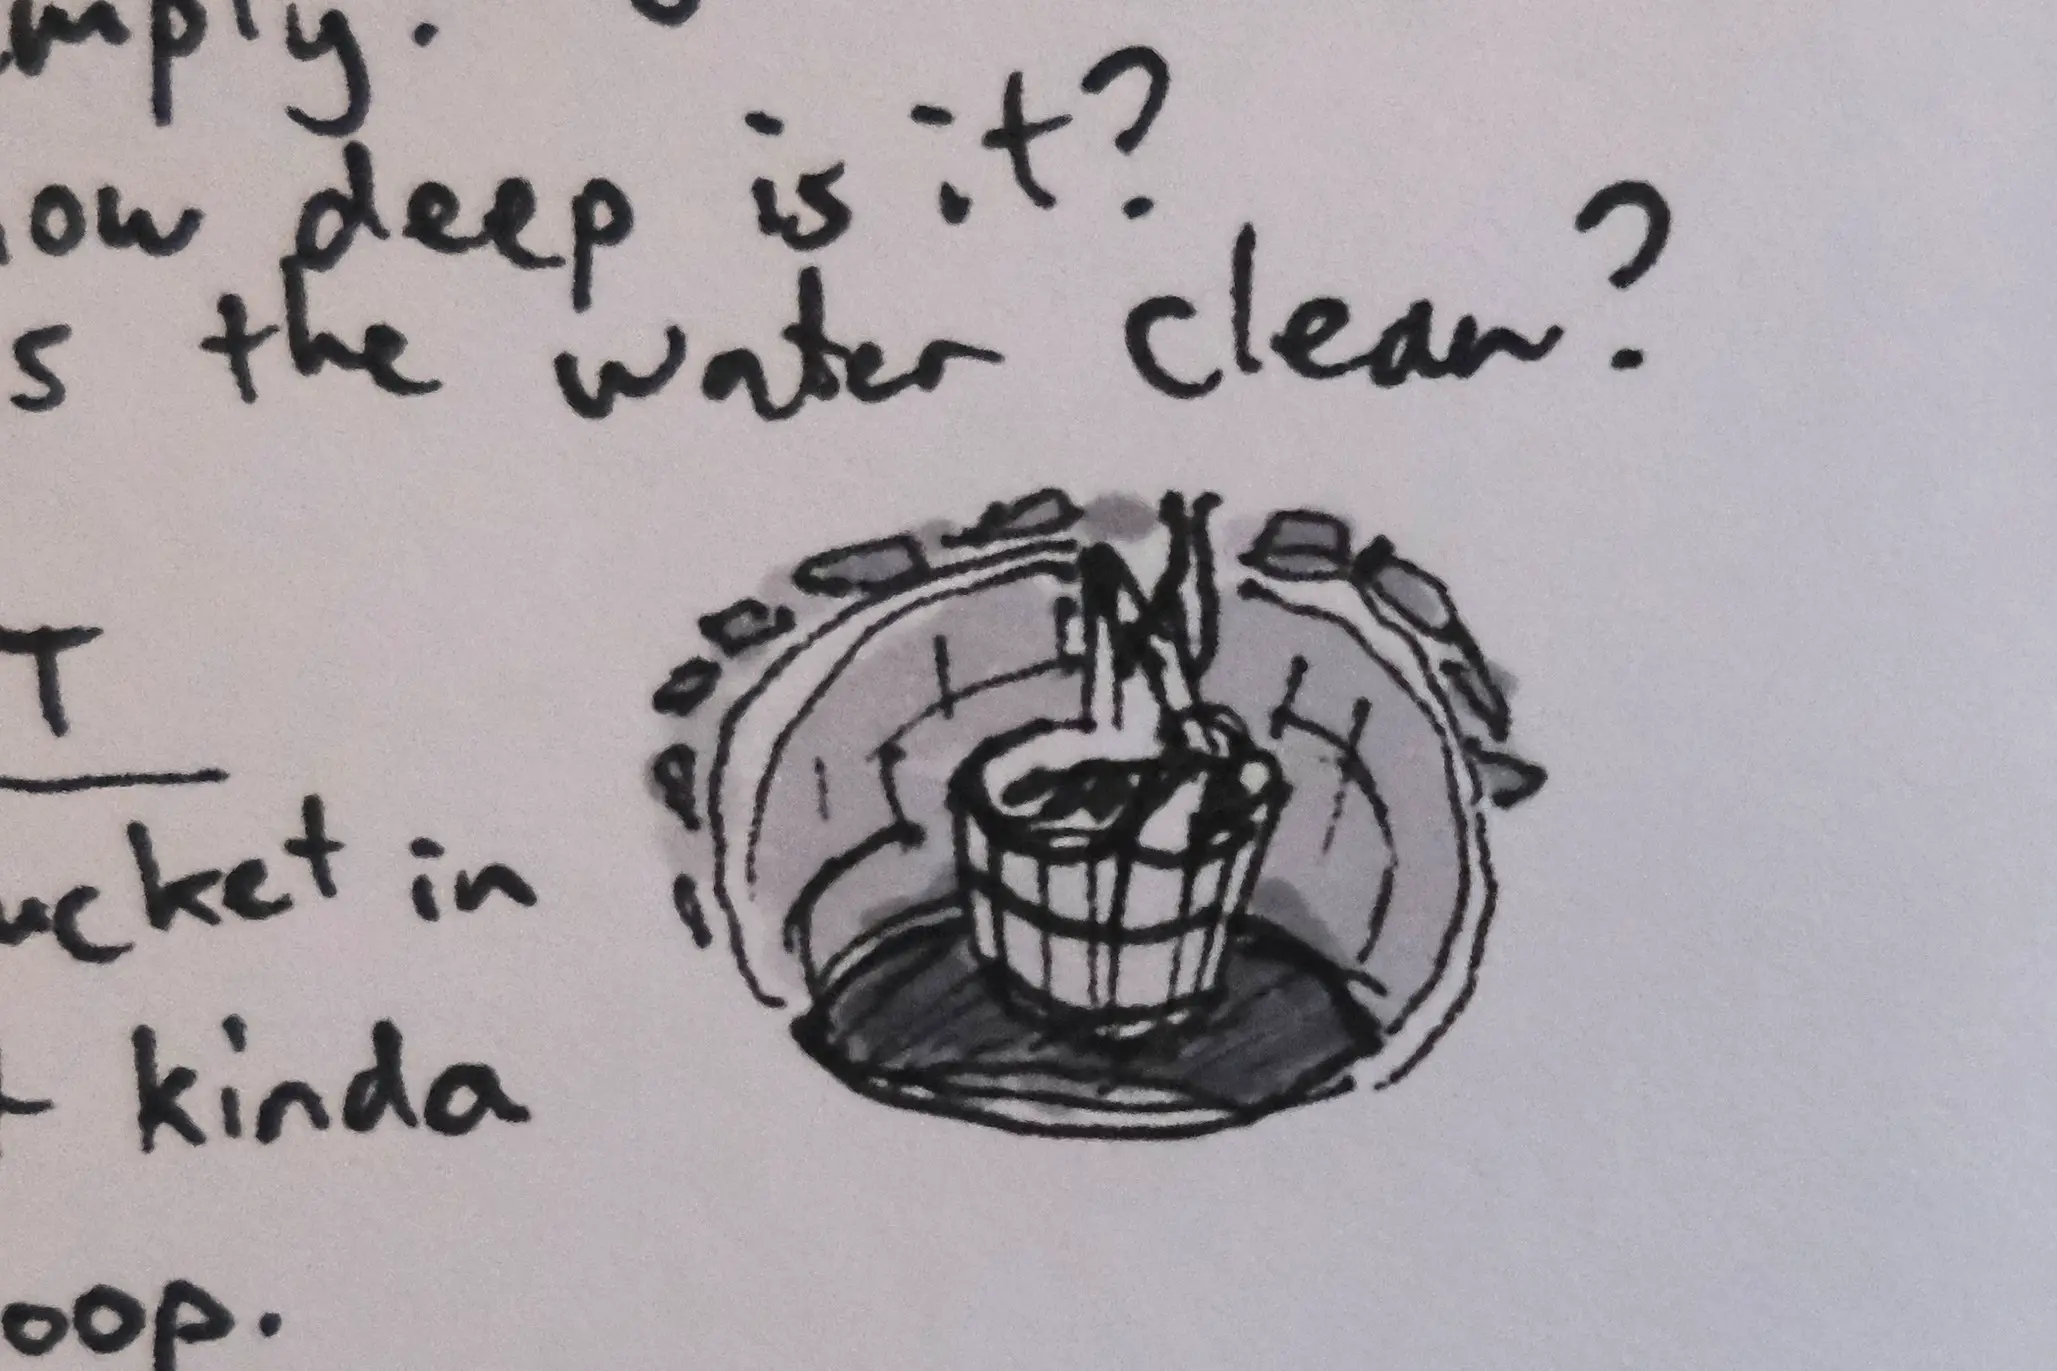 mply.
ow deep is it?
s the water clean?
T
ucket in
kinda
oop.